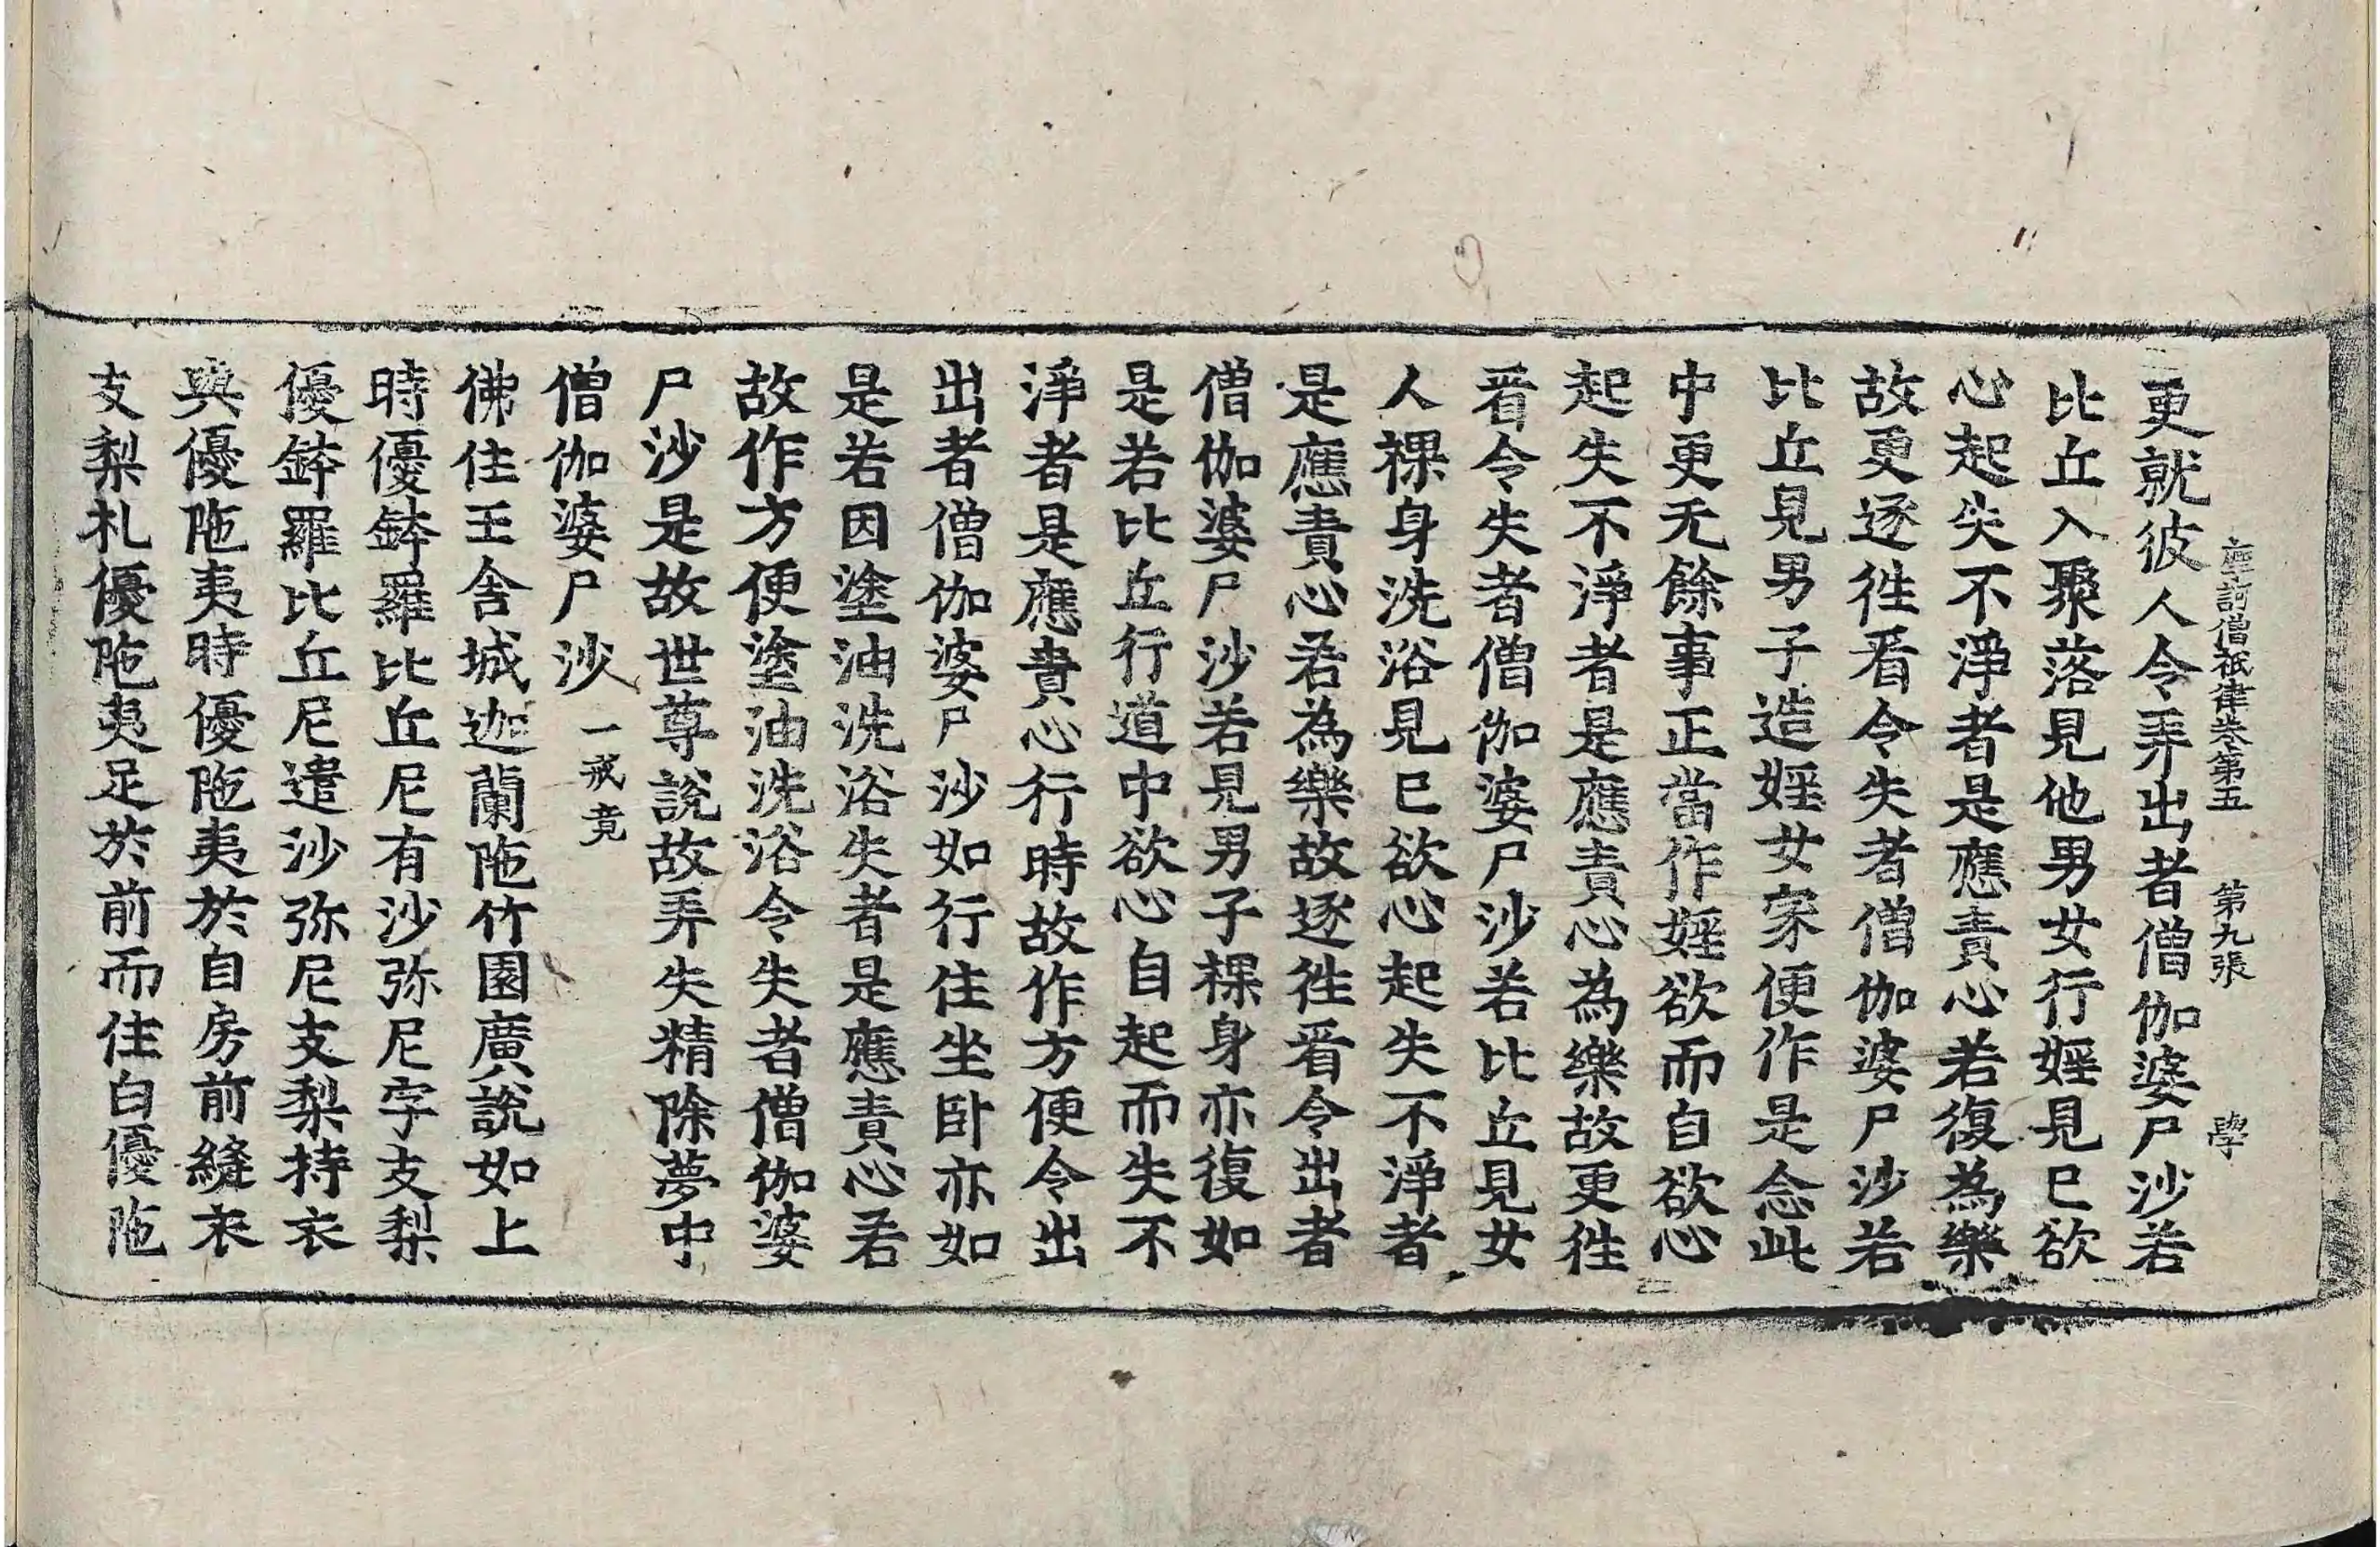 摩訶僧祇律卷第五 第九張 學
更就彼人令弄出者僧伽婆尸沙若
比丘入聚落見他男女行婬見已欲
心起失不淨者是應責心若復為樂
故更逐徃看令失者僧伽婆尸沙若
比丘見男子造婬女家便作是念此
中更无餘事正當作婬欲而自欲心
起失不淨者是應責心為樂故更徃
看令失者僧伽婆尸沙若比丘見女
人裸身洗浴見已欲心起失不淨者
是應責心若為樂故逐徃看令出者
僧伽婆尸沙若見男子裸身亦復如
是若比丘行道中欲心自起而失不
淨者是應責心行時故作方便令出
出者僧伽婆尸沙如行住坐卧亦如
是若因塗油洗浴失者是應責心若
故作方便塗油洗浴令失者僧伽婆
尸沙是故世尊說故弄失精除夢中
僧伽婆尸沙 一戒竟
佛住王舍城迦蘭陁竹園廣說如上
時優鉢羅比丘尼有沙弥尼字支梨
優鉢羅比丘尼遣沙弥尼支梨持衣
與優陁夷時優陁夷於自房前縫衣
支梨札優陁夷足於前而住白優陁